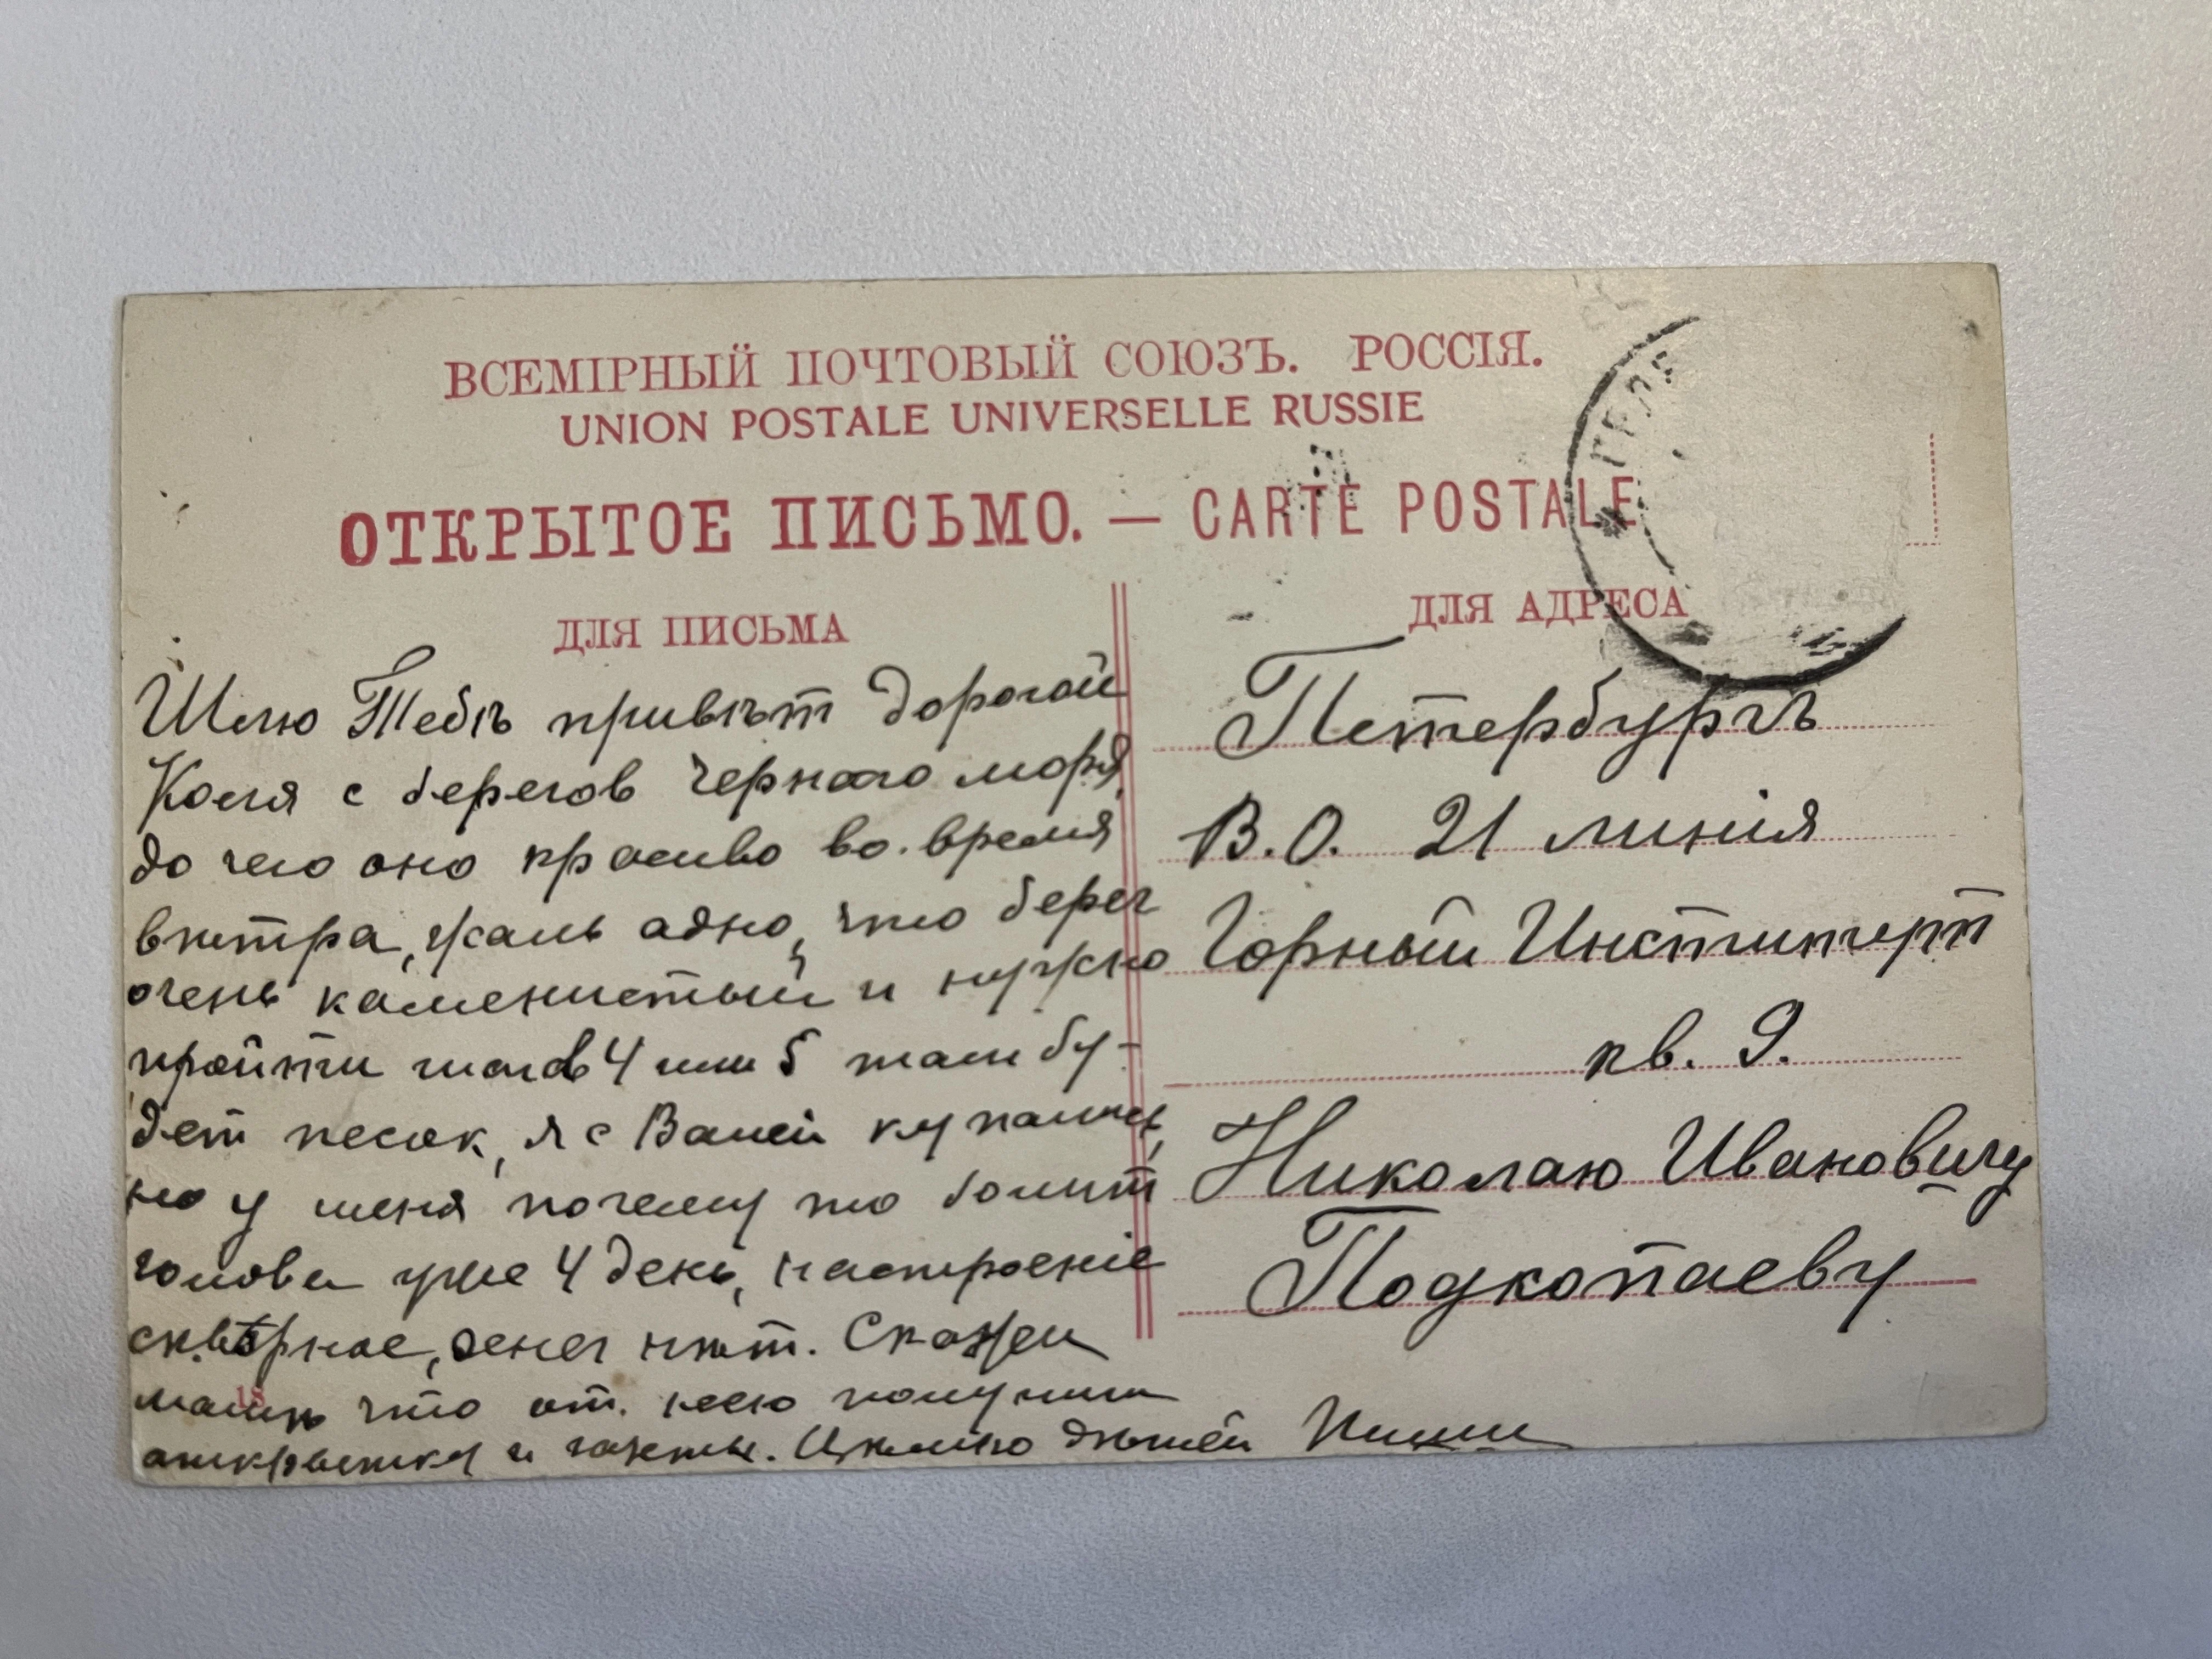 ВСЕМІРНЫЙ ПОЧТОВЫЙ СОЮЗЪ. РОССІЯ.
UNION POSTALE UNIVERSELLE RUSSIE
ОТКРЫТОЕ ПИСЬМО. — CARTE POSTALE
ДЛЯ ПИСЬМА
Шлю Тебѣ привѣт дорогой
Коля с берегов Чернаго моря,
до чего оно красиво во. время
вѣтра, жаль адно, что берег
очень каменистый и нужно
пройти шагов 4 или 5 там бу-
дет песок, я с Ваней купались,
но у меня почему то болит
голова уже 4 день, настроеніе
скверное, денег нѣт. Скажи
мамѣ что от. нею получила
открытку и газеты. Цѣлую Пиши
18
ДЛЯ АДРЕСА
Петербургъ
В.О. 21 линія
Горный Институт
кв. 9.
Николаю Ивановичу
Подкопаеву